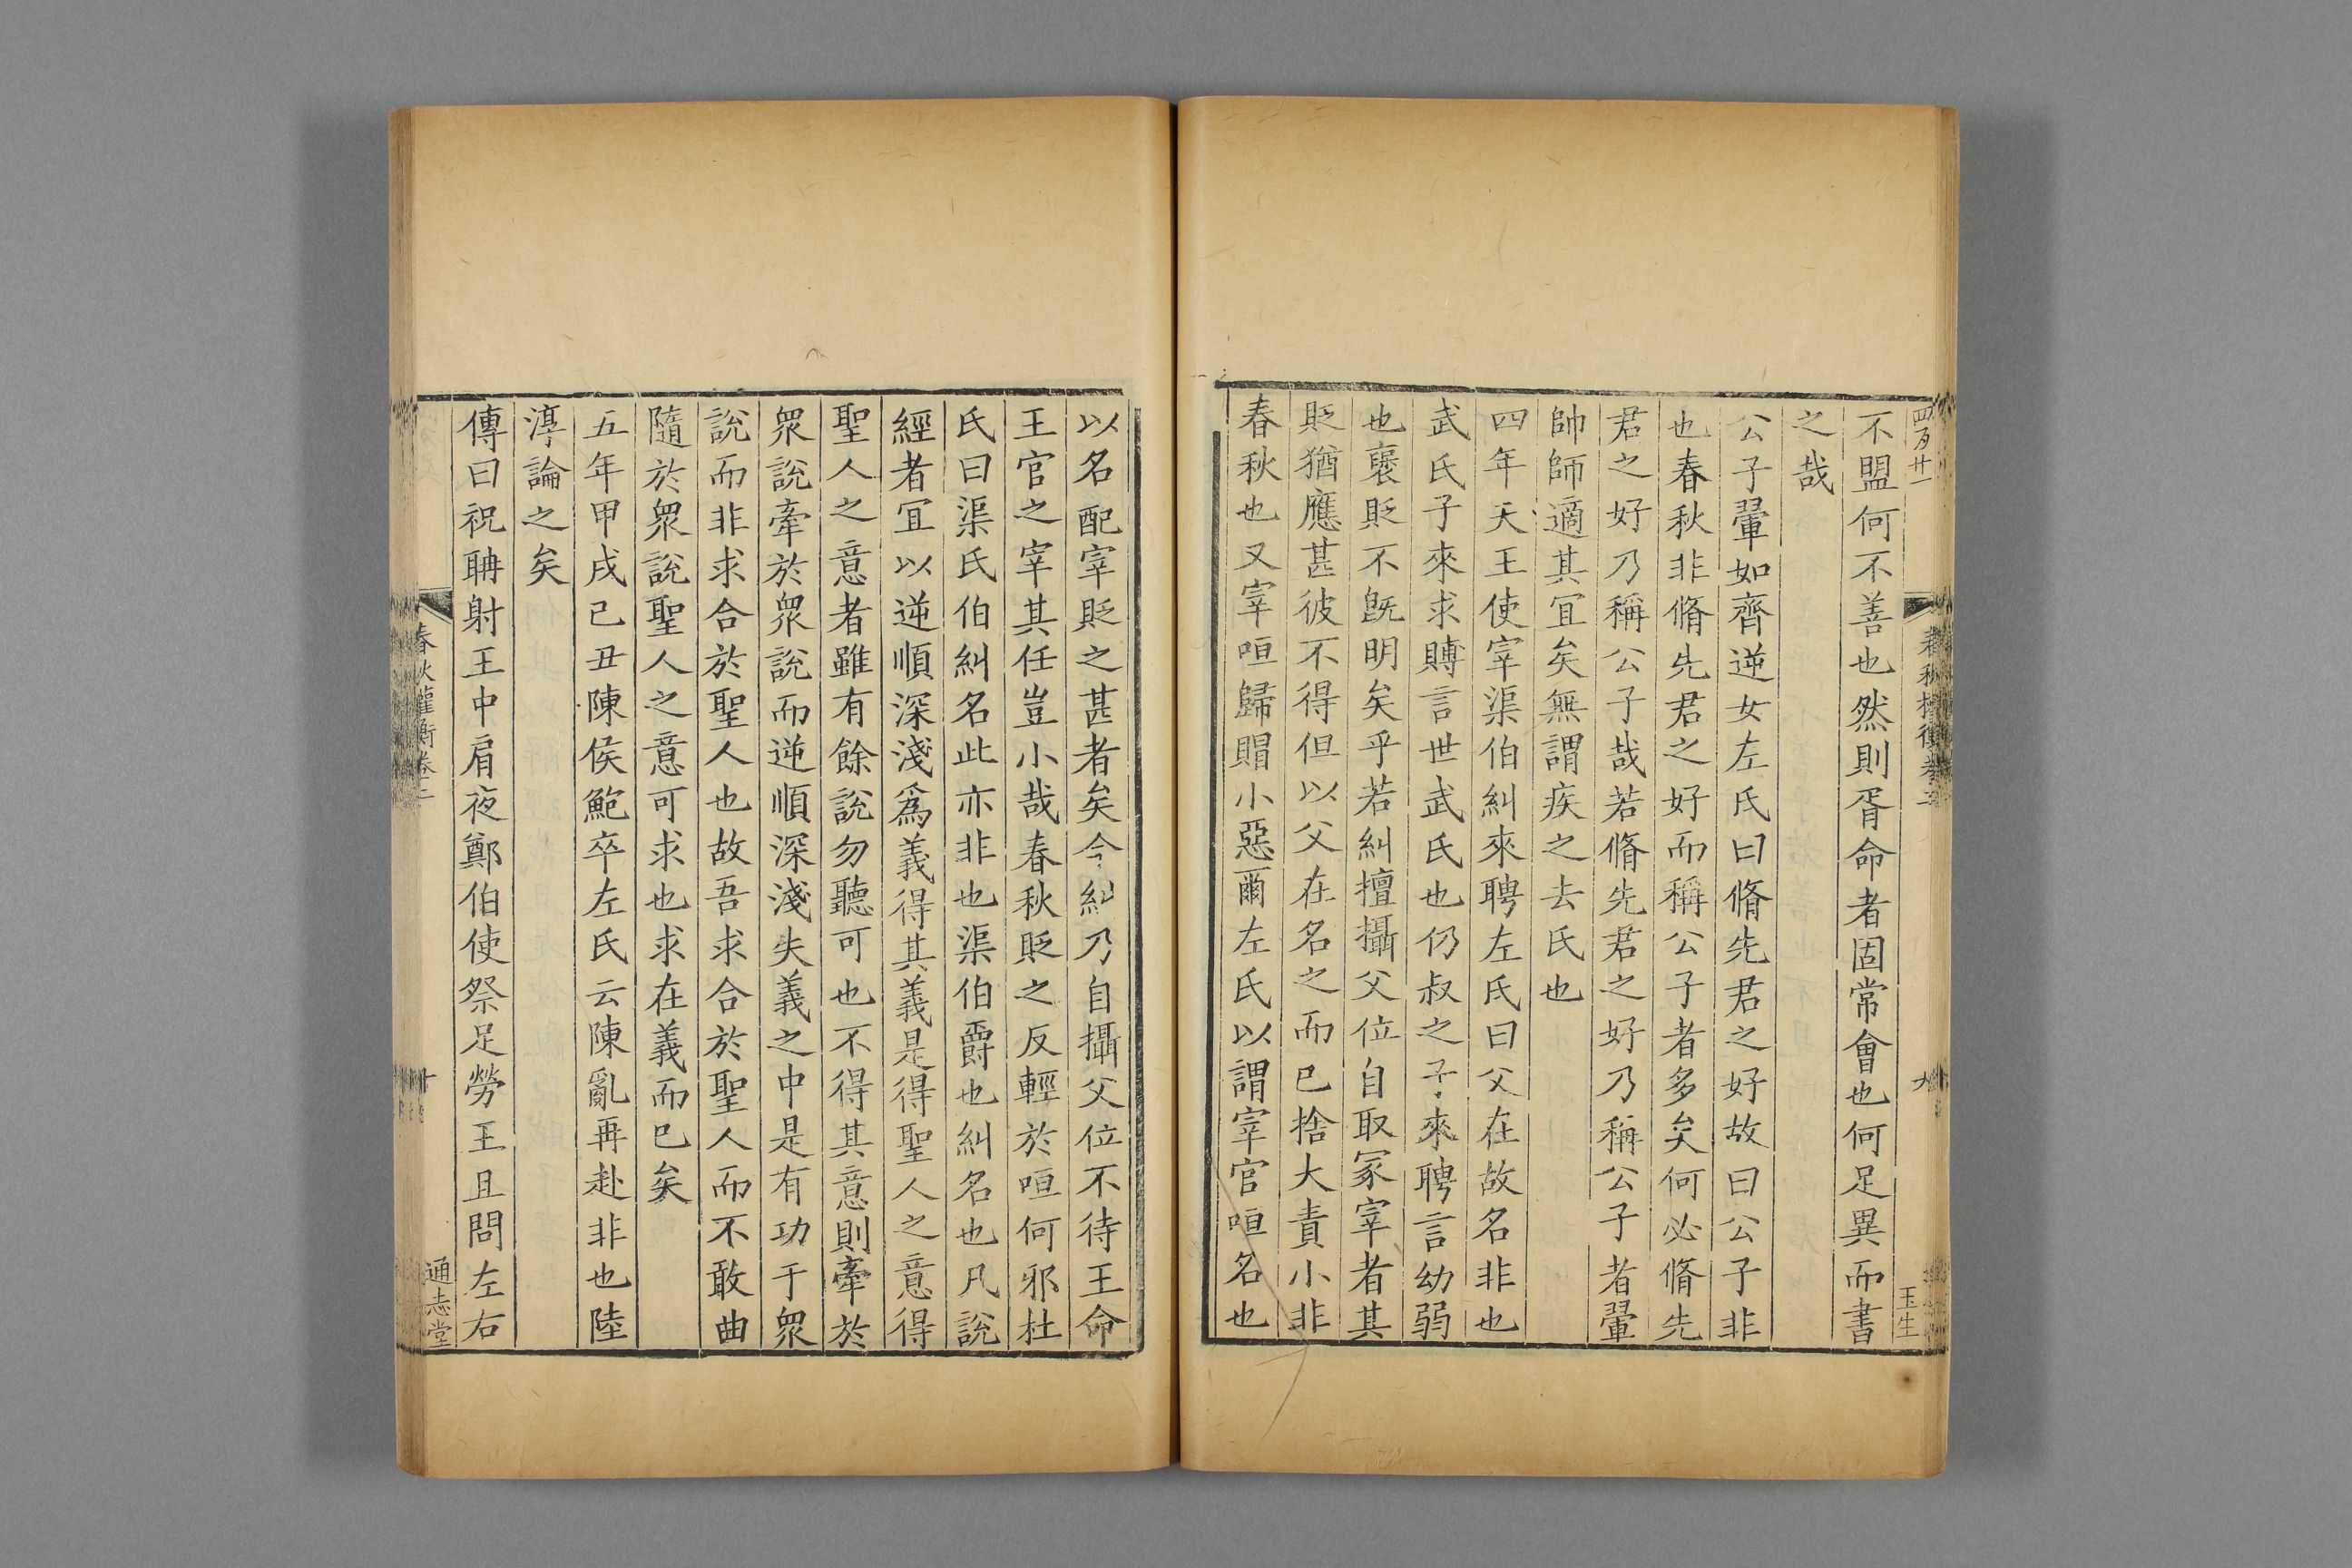 不盟何不善也然則胥命者固常會也何足異而書
之哉
公子翬如齊逆女左氏曰脩先君之好故曰公子非
也春秋非脩先君之好而稱公子者多矣何必脩先
君之好乃稱公子哉若脩先君之好乃稱公子者翬
帥師適其冝矣無謂疾之去氏也
四年天王使宰渠伯糾來聘左氏曰父在故名非也
武氏子來求賻言世武氏也仍叔之子來聘言幼弱
也襃貶不旣明矣乎若糾擅攝父位自取冢宰者其
貶猶應甚彼不得但以父在名之而已捨大責小非
春秋也又宰咺歸賵小惡爾左氏以謂宰官咺名也
以名配宰貶之甚者矣今糾乃自攝父位不待王命
王官之宰其任豈小哉春秋貶之反輕於咺何邪杜
氏曰渠氏伯糾名此亦非也渠伯爵也糾名也凡說
經者冝以逆順深淺爲義得其義是得聖人之意得
聖人之意者雖有餘說勿聽可也不得其意則牽於
衆說牽於衆說而逆順深淺失義之中是有功于衆
說而非求合於聖人也故吾求合於聖人而不敢曲
隨於衆說聖人之意可求也求在義而已矣
五年甲戌己丑陳侯鮑卒左氏云陳亂再赴非也陸
淳論之矣
傳曰祝聃射王中肩夜鄭伯使祭足勞王且問左右
春秋權衡卷二
十
通志堂